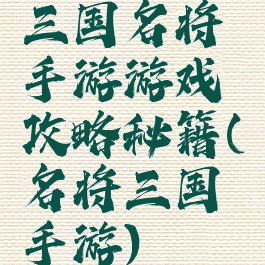 三国名将
手游游戏
攻略秘籍(
名将三国
手游)